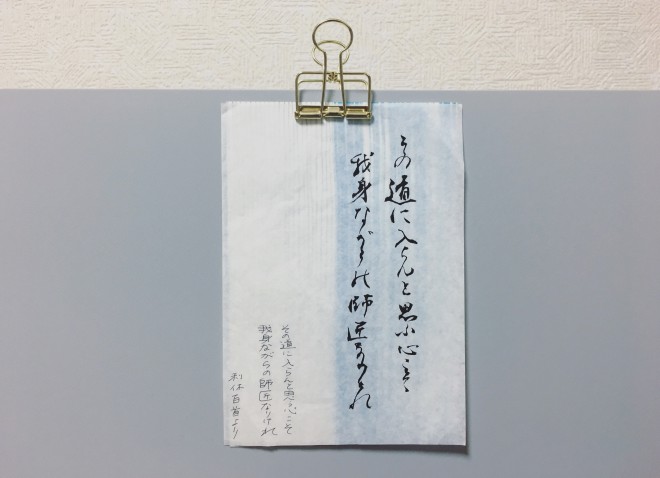 その道に入らんと思ふ心こそ
我身ながらの師匠なりけれ
その道に入らんと思ふ心こそ
我身ながらの師匠なりけれ
利休百首より